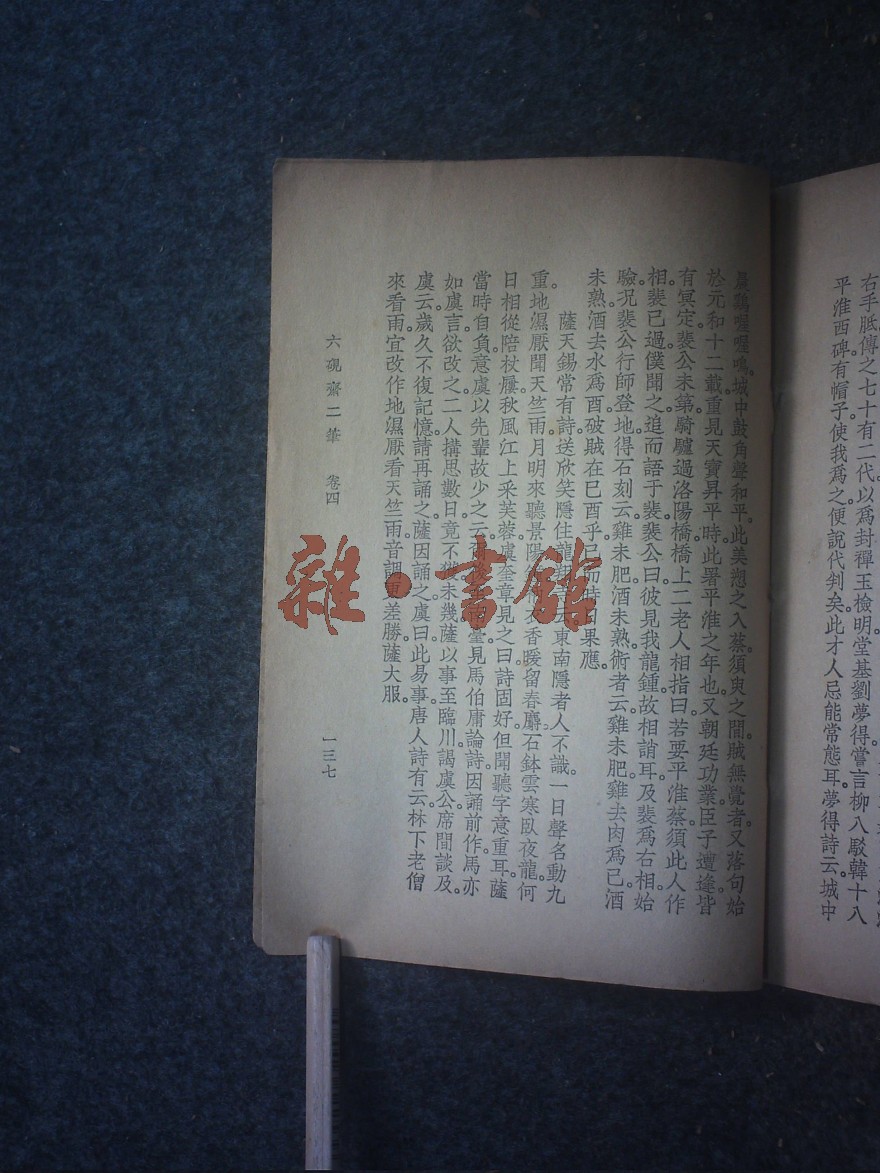 右手胝傳之七十有二代以爲封禪玉檢明堂基劉夢得嘗言柳八駁韓十八
平淮西碑有帽子使我爲之便說代判矣此才人忌能常態耳夢得詩云城中
晨鷄喔喔鳴。城中鼓角聲和平。此美愬之入蔡須臾之間。賊無覺者。又落句始
於元和十二載。重見天寶昇平時。此署平淮之年也。又朝廷功業臣子遭逢皆
有冥定。裴公未第。騎驢過洛陽橋。橋上二老人相指曰。若要平淮蔡。須此人作
相。裴已過。僕聞之。追而語于裴。裴公曰。彼見我龍鍾。故相誚耳。及裴爲右相。始
驗。况裴公行師登地得石刻云。雞未肥。酒未熟。術者云。雞未肥。雞去肉爲己。酒
未熟。酒去水爲酉。破賊在巳酉乎。已而 果應。
薩天錫常有詩送欣笑隱住龍翔 云。東南隱者人不識。一日聲名動九
重。地濕厭聞天竺雨。月明來聽景陽 香暖留春麝。石鉢雲寒臥夜龍。何
日相從陪杖屨。秋風江上采芙蓉。虞奎章見之曰。詩固好。但聞聽字意重耳。薩
當時自負。意虞以先輩故少之云 臺見馬伯庸論詩。因誦前作。馬亦
如虞言。欲改之。二人搆思數日。竟不獲。未幾薩以事至臨川謁虞公。席間談及。
虞云。歲久不復記憶。請再誦之。薩因誦之。虞曰。此易事。唐人詩有云。林下老僧
來看雨。宜改作地濕厭看天竺雨。音調更差勝。薩大服。
六硯齋二筆 卷四
一三七
雜·書館